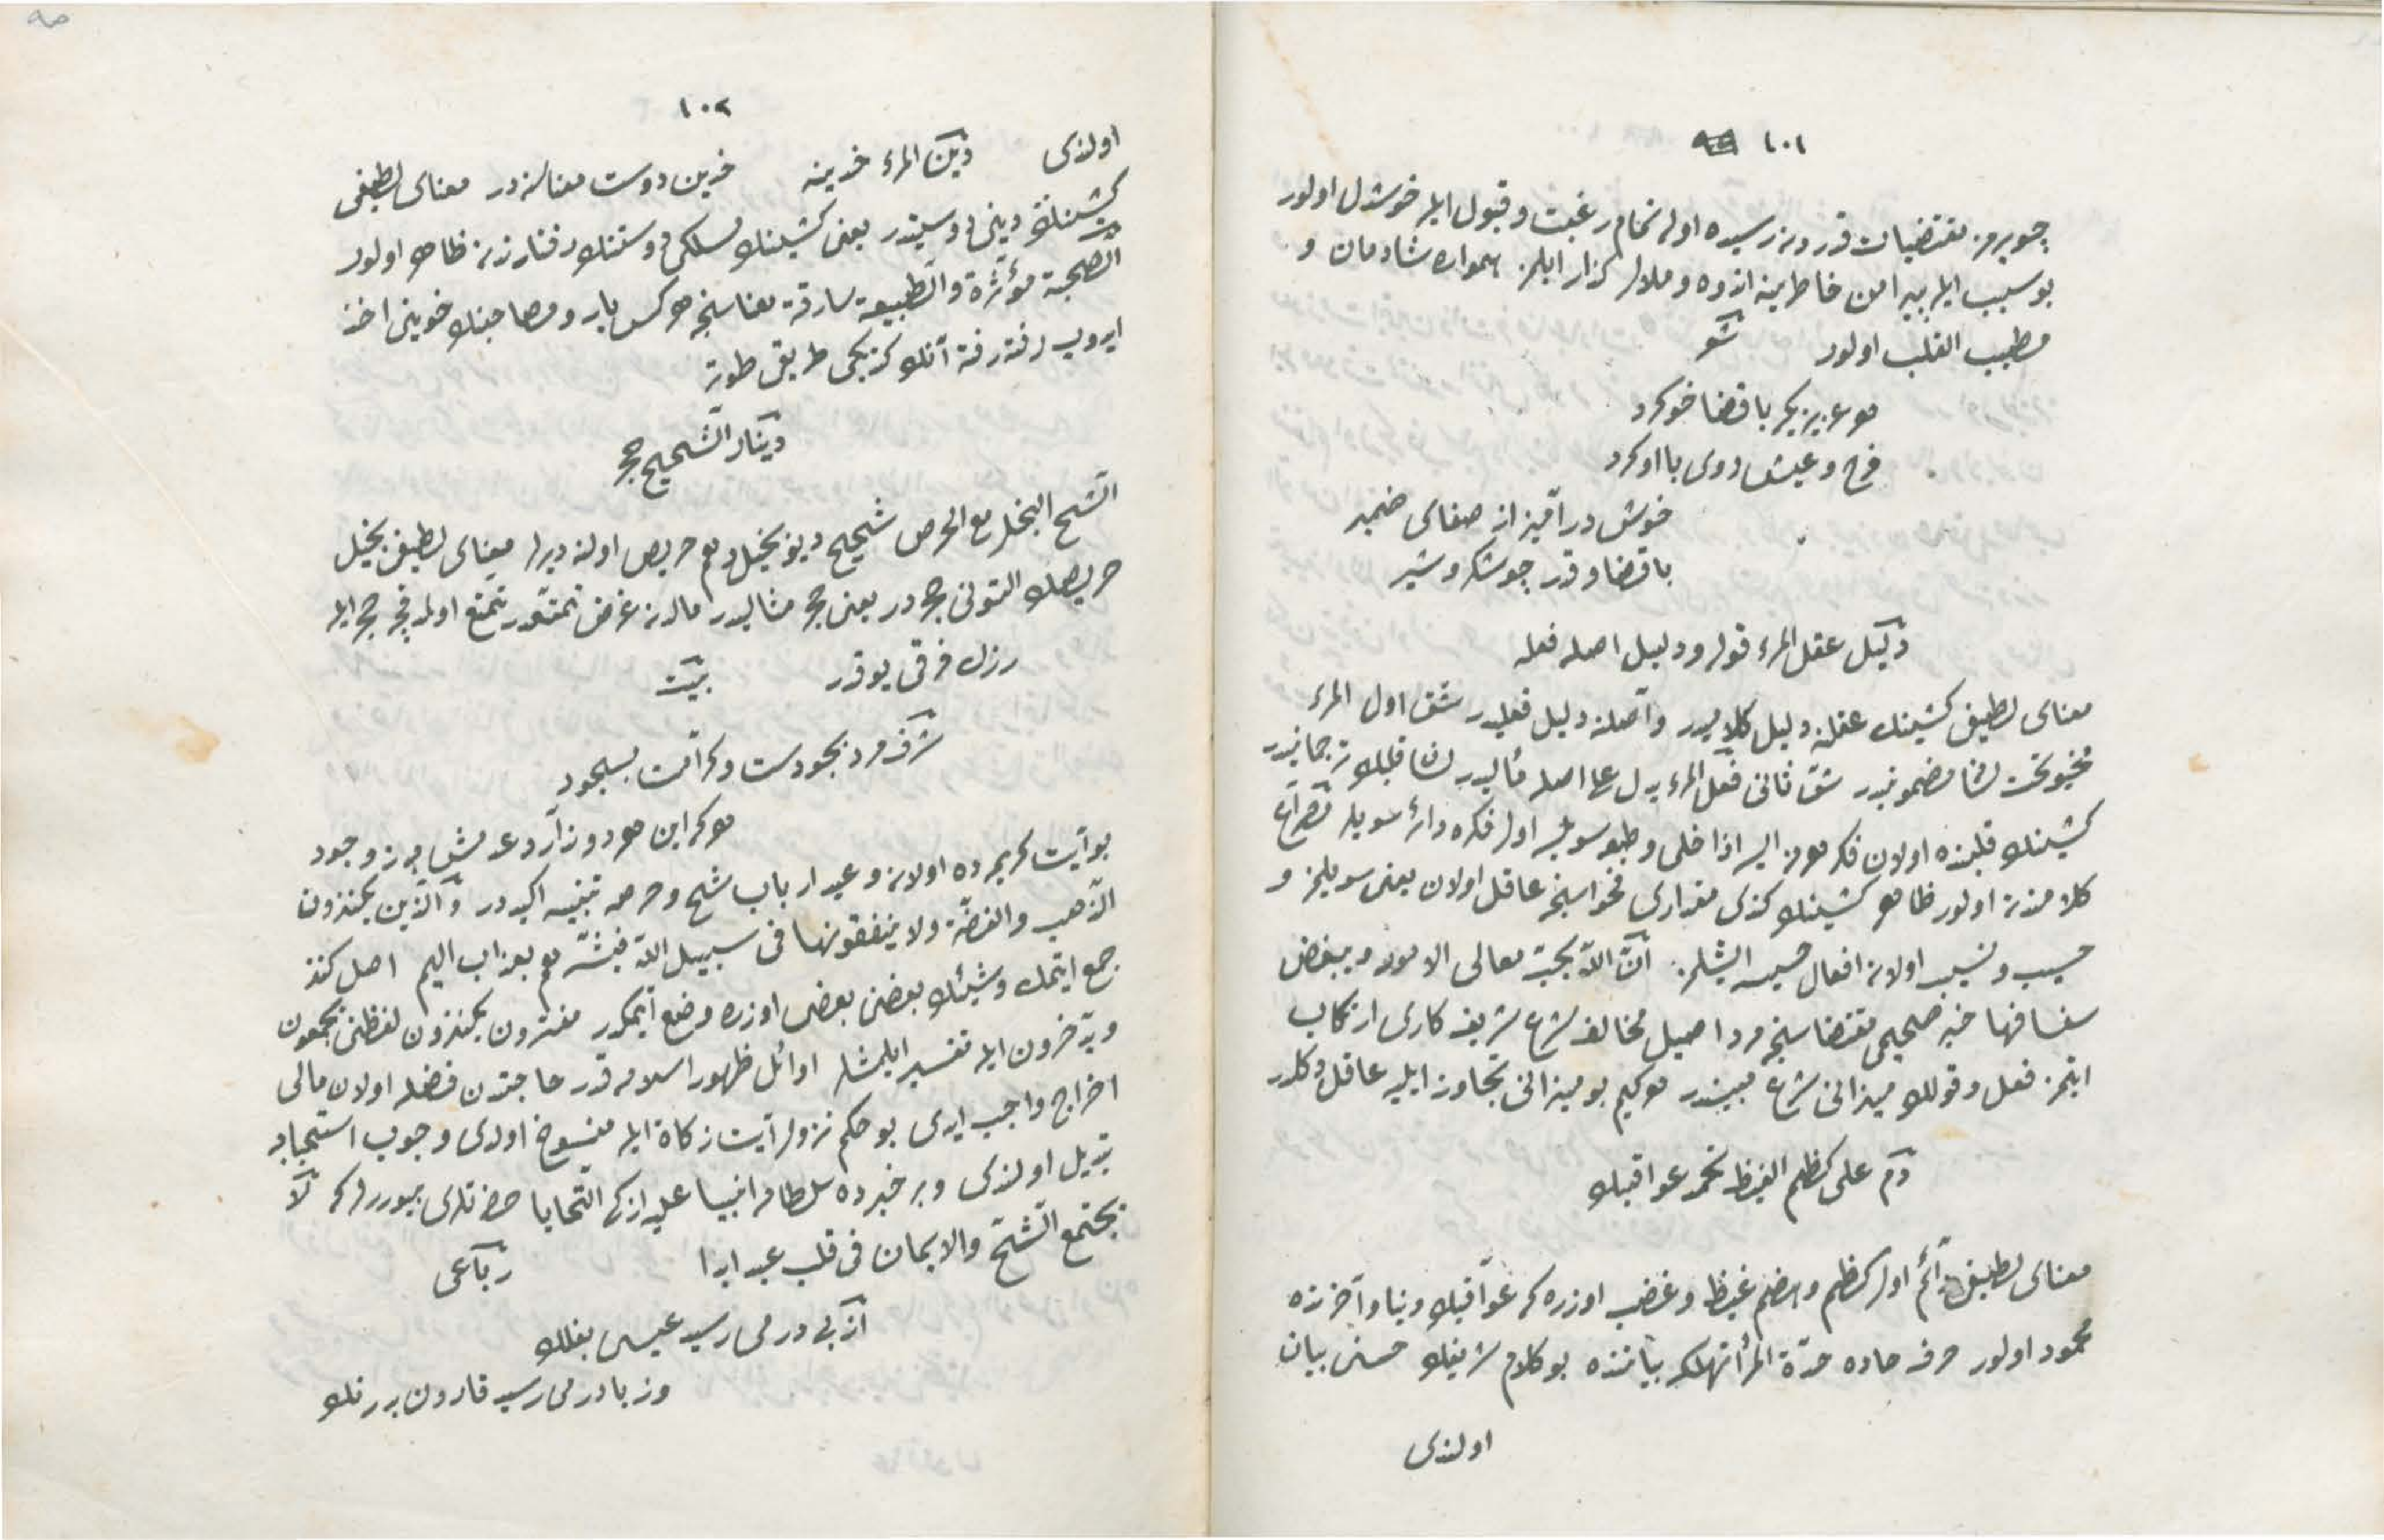 ١٠١
چوبرمز مقتضیات قدردن رسیده اولان تمام رغبت و قبول ایله خوشدل اولور
بو سبب ایله پیرامن خاطرینه اندوه و ملال گذار ایلمز همواره شادمان و
مطیب القلب اولور شعر
هر عزیزیکه با قضا خو کرد
فرح و عیش روی با او کرد
خوش درآمیز از صفای ضمیر
با قضا و قدر چو شکر و شیر
دلیل عقل المرء قوله ودلیل اصله فعله
معنای لطیفی کشینك عقلنه دلیل کلامیدر و اصلنه دلیل فعلیدر شق اول المرء
مخبو تحت لسانه مضمونیدر شق ثانی فعل المرء یدل علی اصله مآلیدر لسان قلبك ترجمانیدر
کشینك قلبنده اولان فکر هر نه ایسه اذا خلی وطبعه سویلسه اول فکره دائر سویلر
کلامندن اولور ظاهر کشینك کندی مقداری فحواسنجه عاقل اولان یعنی سویلمز و
حسیب و نسیب اولان افعال خسیسه ایشلمز انّ اللّه یحبّ معالی الامور ویبغض
سفسافها خبر صحیحی مقتضاسنجه مرد اصیل مخالف شرع شریف کاری ارتکاب
ایتمز فعل و قوللك میزانی شرع مبیندر هر کیم بو میزانی تجاوز ایلیه عاقل دکلدر
دم علی کظم الغیظ تحمد عواقبك
معنای لطیفی دائم اول کظم و هضم غیظ و غضب اوزره که عواقبك دنیا و آخرتده
محمود اولور حرف حاده حدّة المرء تهلکه بیاننده بو کلام شریفك حسنی بیان
اولندی
١٠٢
اولندی دین المرء خدینه خدین دوست معناسنه در معنای لطیفی
کشینك دینی دوستیدر یعنی کشینك مسلکی دوستنك رفتارندن ظاهر اولور
الصحبة مؤثّرة والطبیعة سارقة معناسنجه هر کس یار و مصاحبنك خوینی اخذ
ایدوب رفته رفته آنك کتدیکی طریق طوتر
دینار الشحیح حجر
الشحّ البخل مع الحرص شحیح دیو بخیل و هم حریص اولنه دیرلر معنای لطیفی بخیل
حریصك التونی حجردر یعنی حجر مثالیدر مالدن غرض تمتعدر تمتع اولمیجق حجر ایله
زرك فرقی یوقدر بیت
شرف مرد بجودست و کرامت بسجود
هر که این هر دو ندارد عدمش به ز وجود
بو آیت کریمه ده اولان وعید ارباب شحّ و حرصه تنبیه اکیددر والّذین یکنزون
الذهب والفضّة ولا ینفقونها فی سبیل اللّه فبشّرهم بعذاب الیم اصل کنز
جمع ایتمك و شیئك بعضنی بعضی اوزره وضع ایتمکدر مفسّرون یکنزون لفظنی یجمعون
ویدّخرون ایله تفسیر ایلمشلر اوائل ظهور اسلامه قدر حاجتدن فضله اولان مالی
اخراج واجب ایدی بو حکم نزول آیت زکاة ایله منسوخ اولدی وجوب استحبابه
تبدیل اولندی و بر خبرده سلطان انبیا علیه ازکی التحایا حضرتلری بیوررلر که لا
یجتمع الشحّ والایمان فی قلب عبد ابدا رباعی
از بی درمی رسید عیسی بفلك
وز با درمی رسید قارون بدرك